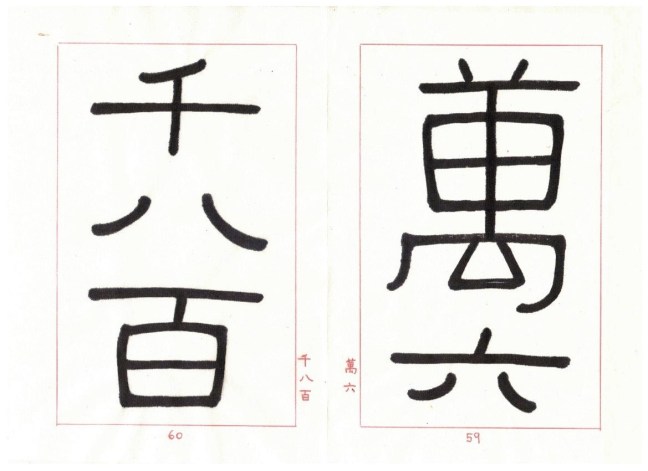 萬六
萬六
59
千八百
千八百
60